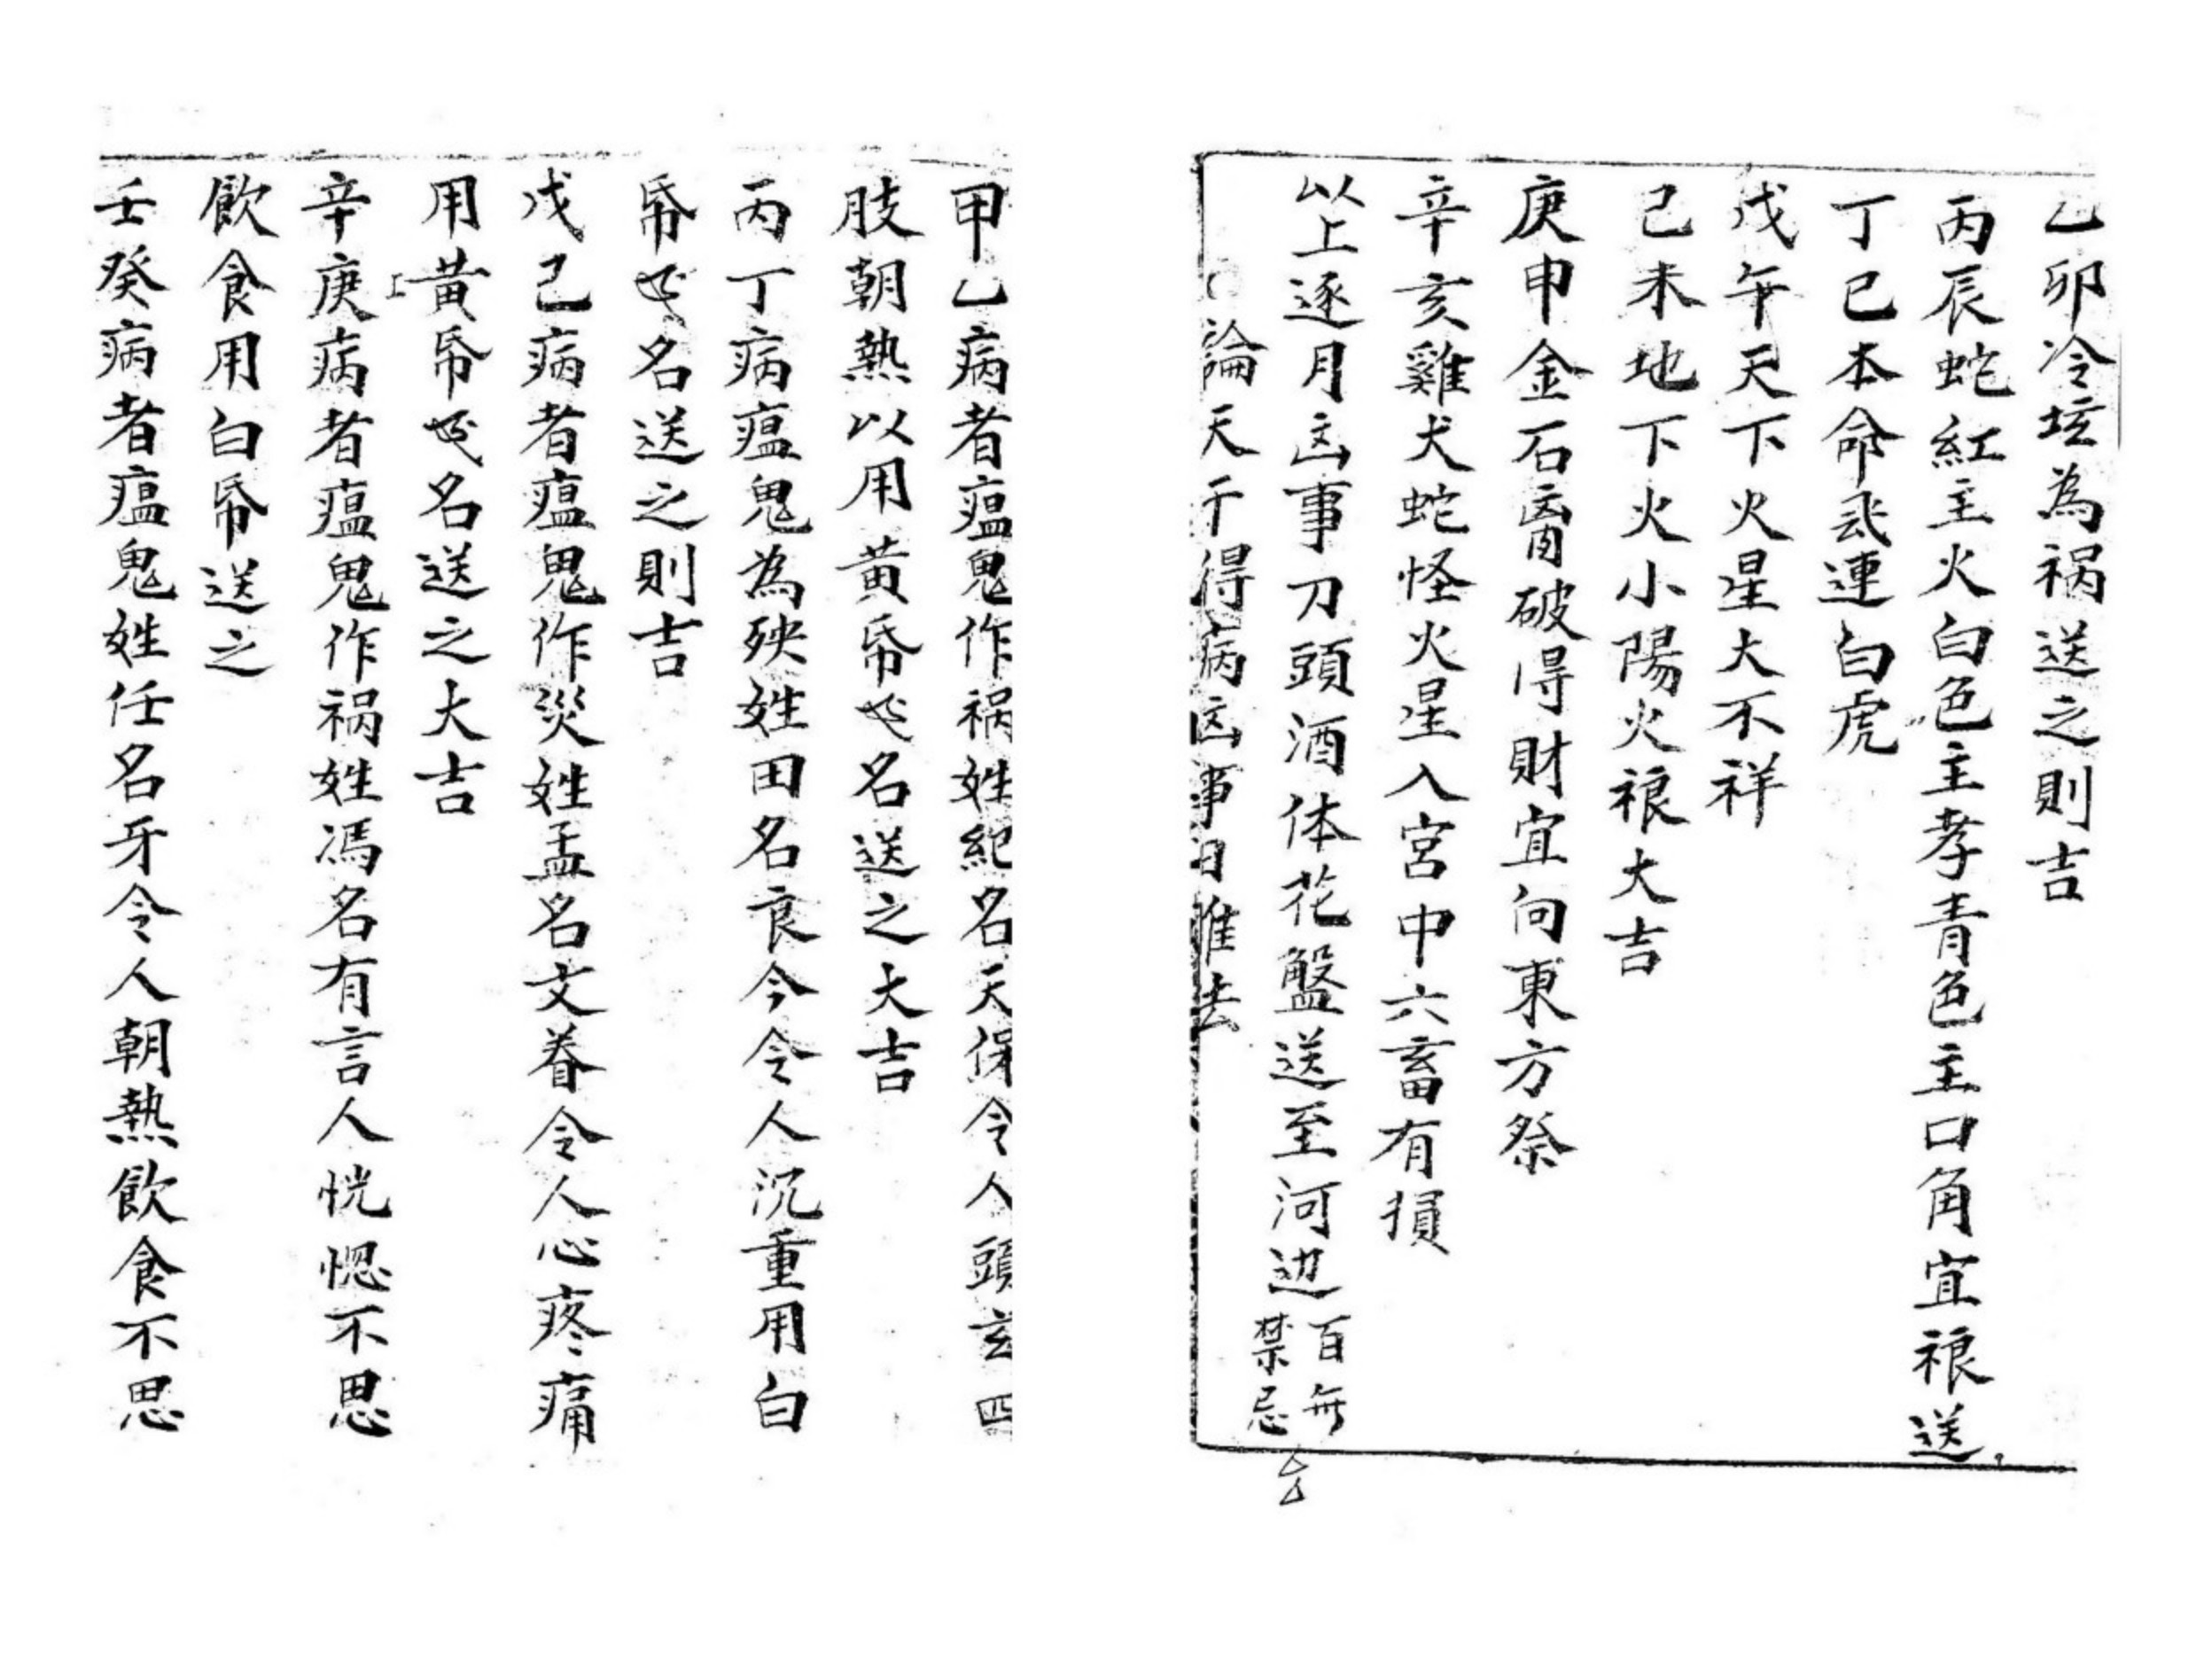 乙卯冷坛為祸送之則吉
丙辰蛇紅主火白色主孝青色主口角宜祿送
丁巳本命飛連白虎
戊午天下火星大不祥
己未地下火小陽火祿大吉
庚申金石破得財宜向東方祭
辛亥雞犬蛇怪火星入宮中六畜有損
以上逐月凶事刀頭酒体花盤送至河边百無禁忌
論天干得病凶事日推去
甲乙病者瘟鬼作祸姓紀名天保令人頭玄四
肢朝熱以用黄帋名送之大吉
丙丁病瘟鬼為殃姓田名良今令人沉重用白
帋名送之則吉
戊己病者瘟鬼作災姓孟名文眷令人心疼痛
用黄帋名送之大吉
辛庚病者瘟鬼作祸姓馮名有言人恍惚不思
飲食用白帋送之
壬癸病者瘟鬼姓任名牙令人朝熱飲食不思